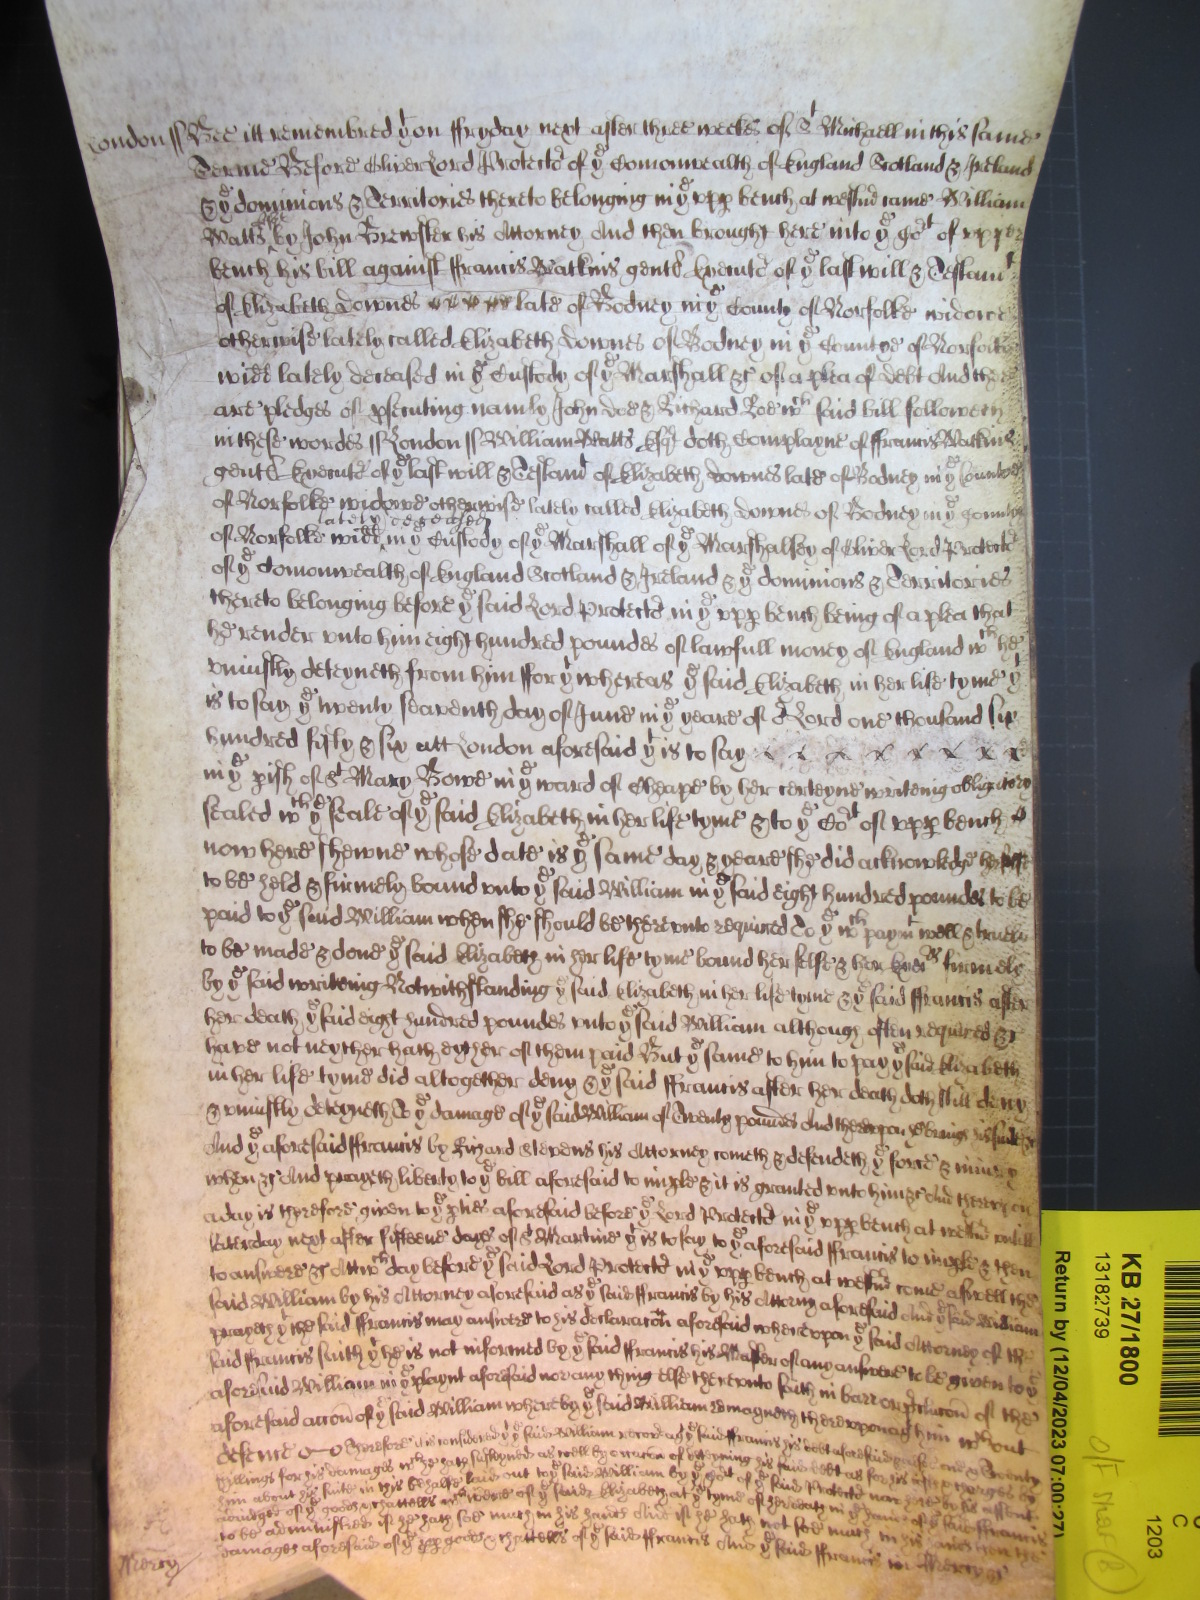 London ss Bee itt remembred yt on ffryday next after three weeks of St Michaell in this same
Terme Before Oliver Lord Protector of ye Comonwealth of England Scotland & Ireland
& ye dominions & Territories thereto belonging in ye upp bench at westmr came William
Watts by John Brewster his Attorney And then brought here into ye Cort of upper
bench his bill against ffrancis Watkins gent Executr of ye last will & Testamt
of Elizabeth Downes late of Bodney in ye County of Norfolke widowe
otherwise lately called Elizabeth Downes of Bodney in ye Countye of Norfolke
widd lately deceased in ye Custody of ye Marshall &c of a plea of debt And there
are pledges of psecuting namely John Doe & Richard Roe wch said bill followeth
in these wordes ss London ss William Watts Esqr doth Complayne of ffrancis Watkins
gent Executr of ye last will & Testamt of Elizabeth Downes late of Bodney in ye Countye
of Norfolke widowe otherwise lately called Elizabeth Downes of Bodney in ye County
lately deceased
of Norfolke widd in ye Custody of ye Marshall of ye Marshalsey of Oliver Lord Protectr
of ye Comonwealth of England Scotland & Ireland & ye dominions & Territories
thereto belonging before ye said Lord Protectr in ye upp bench being of a plea that
he render unto him eight hundred poundes of lawfull money of England wch he
uniustly deteyneth from him ffor yt whereas ye said Elizabeth in her life tyme yt
is to say ye twenty seaventh day of June in ye yeare of or Lord one thousand six
hundred fifty & six att London aforesaid yt is to say x x x x x x x x
in ye pish of St Mary Bowe in ye ward of Cheape by her certeyne writeing obligatory
sealed wth ye seale of ye said Elizabeth in her life tyme & to ye Cort of upp bench
now here shewne whose date is ye same day & yeare she did acknowledge herselfe
to be held & firmely bound unto ye said William in ye said eight hundred poundes to be
paid to ye said William when she should be thereunto required To ye wch paymt well & truely
to be made & done ye said Elizabeth in her life tyme bound her selfe & her firmely
by ye said writeing Notwithstanding ye said Elizabeth in her life tyme & ye said ffrancis after
her death ye said eight hundred poundes unto ye said William although often required &c
have not neyther hath eyther of them paid But ye same to him to pay ye said Elizabeth
in her life tyme did altogether deny & ye said ffrancis after her death doth still deny
& uniustly deteyneth To ye damage of ye said William of Twenty poundes And thereupon he brings his suite &c
And ye aforesaid ffrancis by Richard Stevens his Attorney cometh & defendeth ye force & iniury
when &c And prayeth liberty to ye bill aforesaid to imple & it is granted unto him &c And thereupon
a day is therefore given to ye pties aforesaid before ye Lord Protectr in ye upp bench at westmr untill
Saterday next after fifteene dayes of St Martine yt is to say to ye aforesaid ffrancis to imple & then
to answere &c Att wch day before ye said Lord Protectr in ye upp bench at westmr come aswell the
said William by his Attorney aforesaid as ye said ffrancis by his Attorny aforesaid And ye said William
prayeth yt the said ffrancis may answere to his declaracon aforesaid whereupon ye said Attorney of the
said ffrancis saith yt he is not informed by ye said ffrancis his Master of any answere to be given to ye
aforesaid William in ye playnt aforesaid nor any thing else thereunto saith in barr or pclusion of the
aforesaid accon of ye said William whereby ye said William remayneth thereupon agt him wthout
defence Therefore it is considered yt ye said William recover agt ye said ffrancis his debt aforesaid and Twenty
shillings for his damages wch he hath susteyned as well by occacon of deteyning his said debt as for his charges by
him about his suite in this behalfe laid out to ye said William by ye Cort of ye said Protectr now here by his assent
adiudged of ye goodes & chattells wch were of ye said Elizabeth at ye tyme of her death in ye handes of ye said ffrancis
to be administred if he hath soe much in his handes And if he hath not soe much in his handes then the
damages aforesaid of ye pp goodes & chattells of ye said ffrancis And ye said ffrancis in Mercy &c
Mercy
KB 27/1800
13182739
Return by (12/04/2023 07:00:27)
1203
C